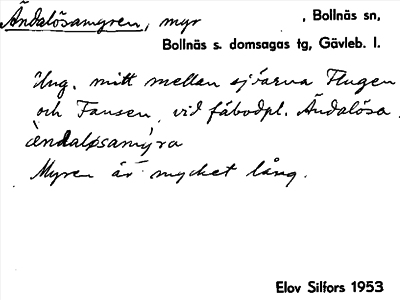 Ändalösamyren, myr , Bollnäs sn,
Bollnäs s. domsagas tg, Gävleb. l.
Ung. mitt mellan sjöarna Flugen
och Fansen, vid fäbodpl. Ändalösa.
ændaløsamýra
Myren är mycket lång.
Elov Silfors 1953